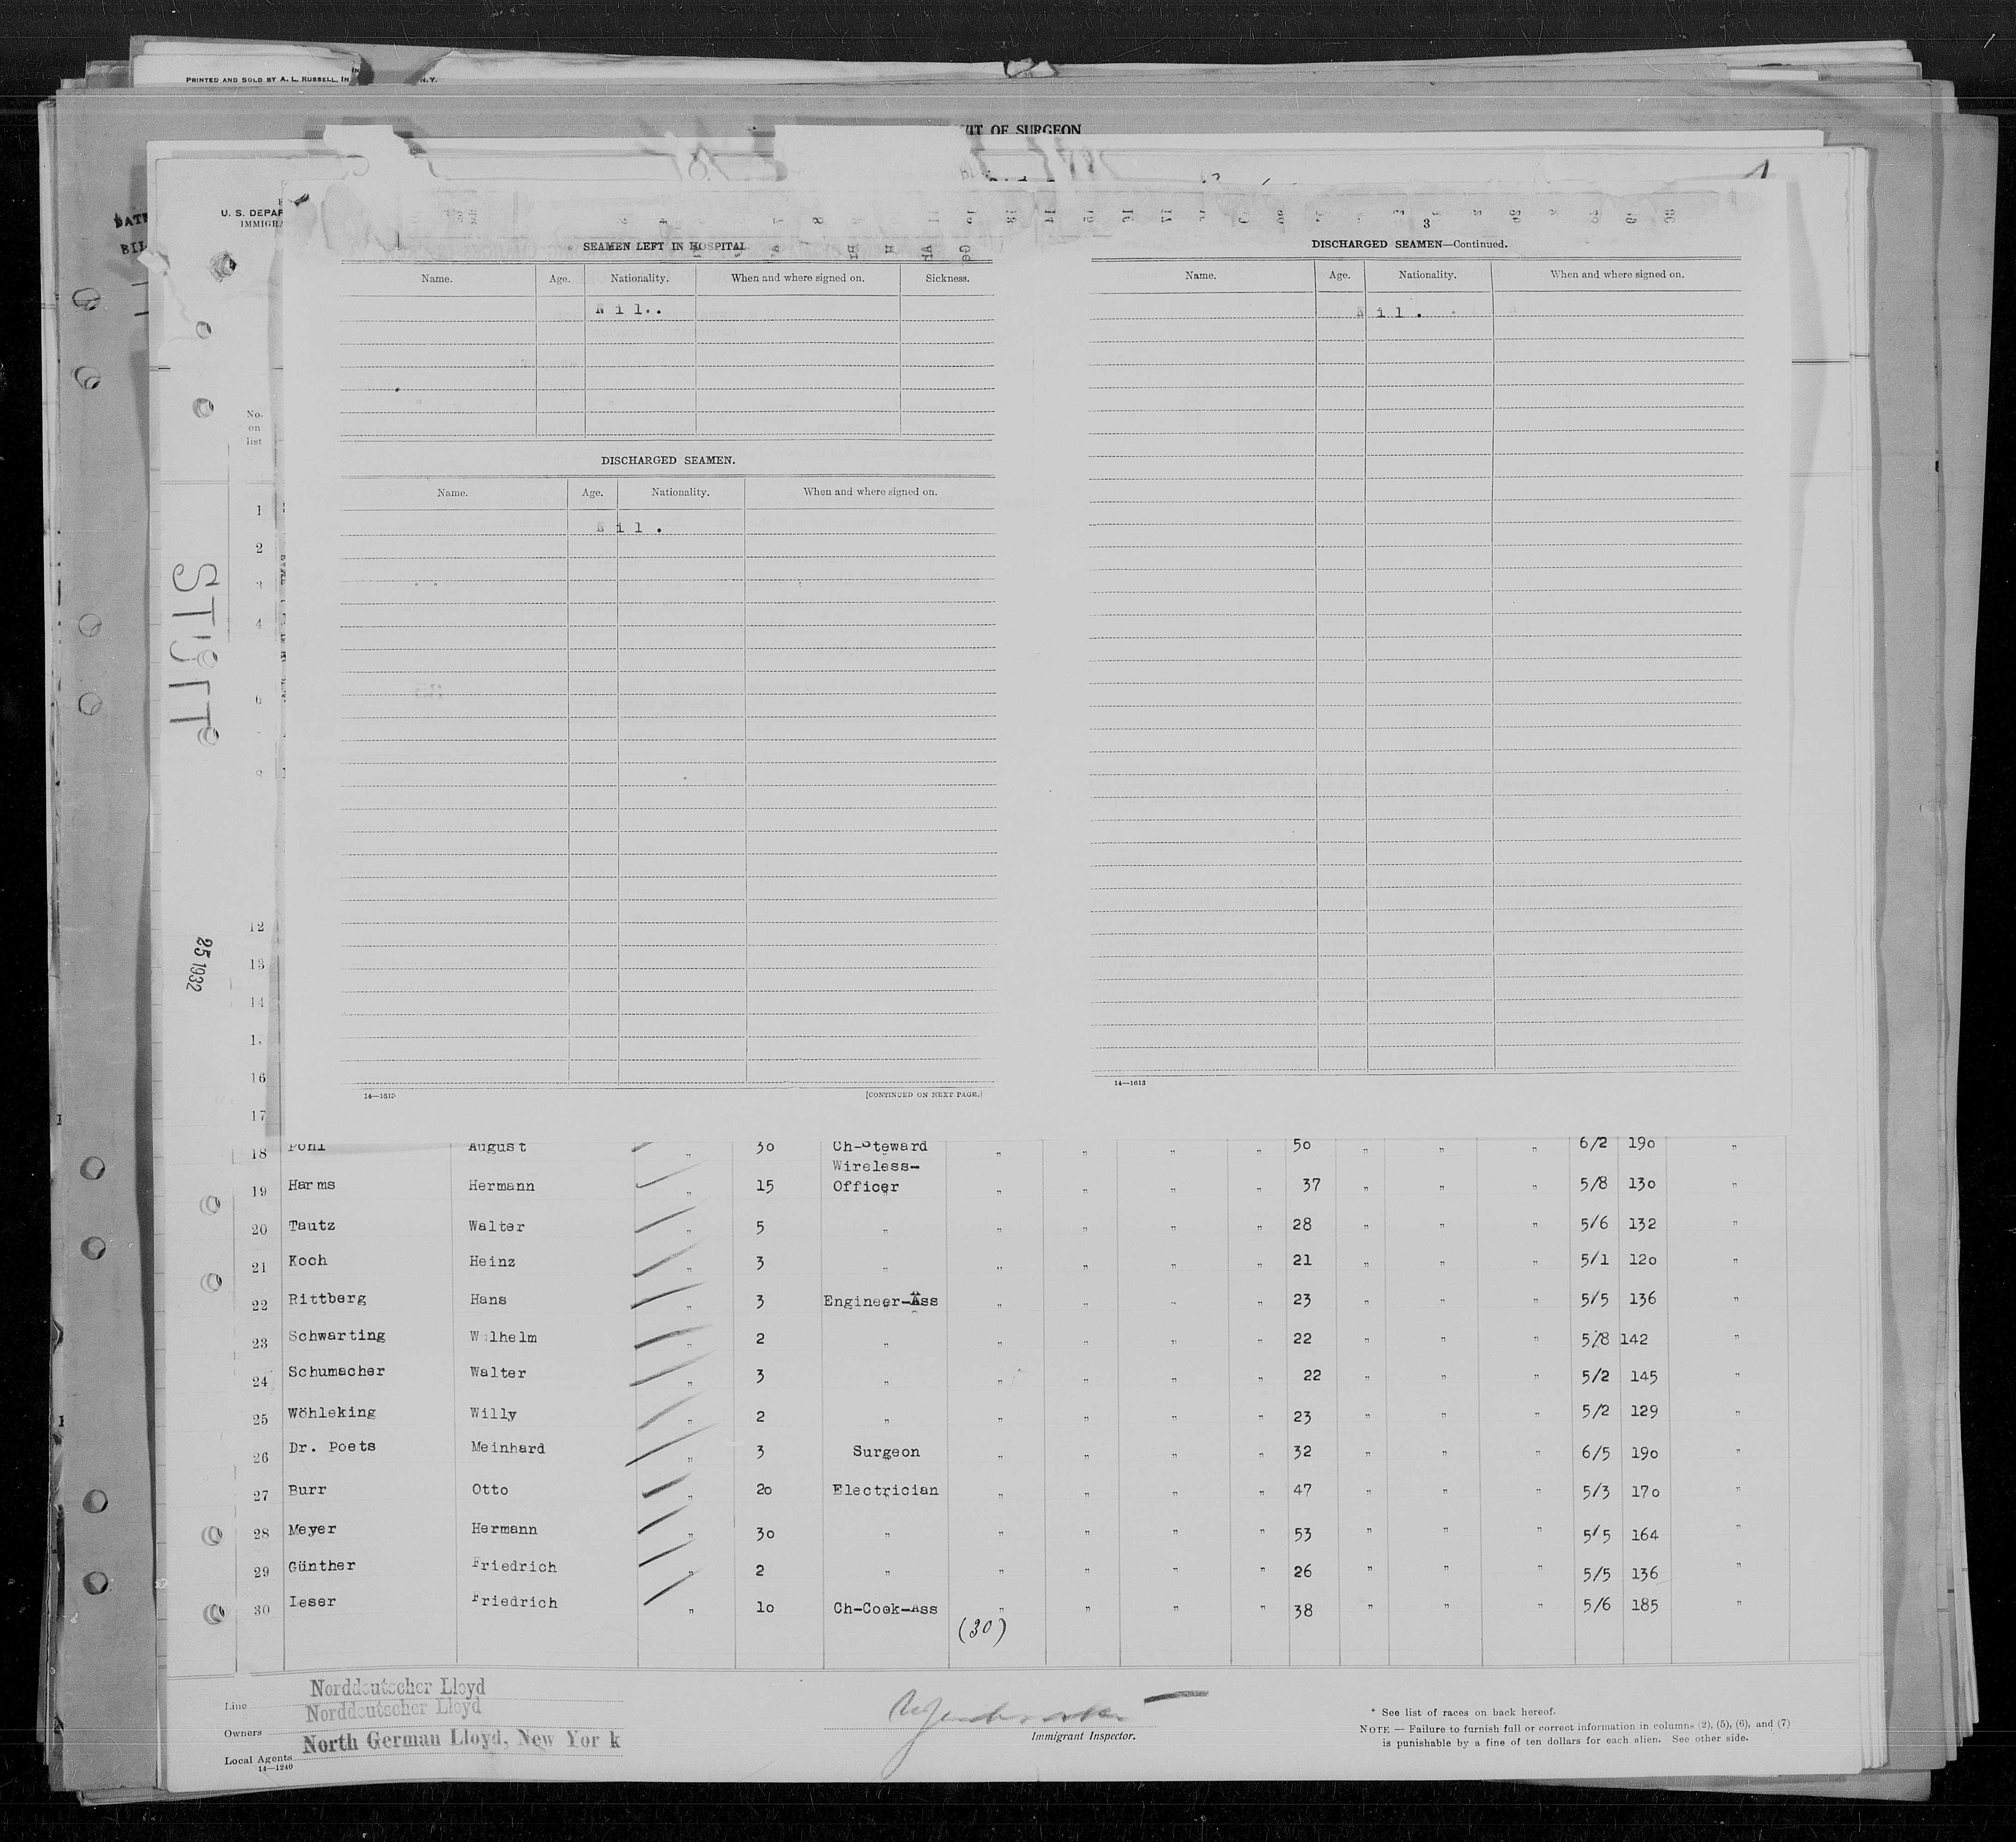 PRINTED AND SOLD BY A. L. RUSSELL, IN
N.Y.
OF SURGEON
U. S. DEPAR
IMMIGRA
3
SEAMEN LEFT IN HOSPITAL
Name. Age. Nationality. When and where signed on. Sickness.
Nil..
DISCHARGED SEAMEN.
Name. Age. Nationality. When and where signed on.
Nil.
14—1613
[CONTINUED ON NEXT PAGE.]
DISCHARGED SEAMEN—Continued.
Name. Age. Nationality. When and where signed on.
Nil.
14—1613
No.
on
list
1
2
3
4
6
8
12
13
14
16
17
25 1932
18 Pohl August " 30 Ch-Steward " " " " 50 " " " 6/2 190 "
Wireless-
19 Harms Hermann " 15 Officer " " " " 37 " " " 5/8 130 "
20 Tautz Walter " 5 " " " " " 28 " " " 5/6 132 "
21 Koch Heinz " 3 " " " " " 21 " " " 5/1 120 "
22 Rittberg Hans " 3 Engineer-Ass " " " " 23 " " " 5/5 136 "
23 Schwarting Wilhelm " 2 " " " " " 22 " " " 5/8 142 "
24 Schumacher Walter " 3 " " " " " 22 " " " 5/2 145 "
25 Wöhleking Willy " 2 " " " " " 23 " " " 5/2 129 "
26 Dr. Poets Meinhard " 3 Surgeon " " " " 32 " " " 6/5 190 "
27 Burr Otto " 20 Electrician " " " " 47 " " " 5/3 170 "
28 Meyer Hermann " 30 " " " " " 53 " " " 5/5 164 "
29 Günther Friedrich " 2 " " " " " 26 " " " 5/5 136 "
30 Leser Friedrich " 10 Ch-Cook-Ass " " " " 38 " " " 5/6 185 "
(30)
Line Norddeutscher Lloyd
Norddeutscher Lloyd
Owners
Local Agents North German Lloyd, New York
14—1240
Immigrant Inspector.
* See list of races on back hereof.
NOTE — Failure to furnish full or correct information in columns (2), (5), (6), and (7)
is punishable by a fine of ten dollars for each alien. See other side.